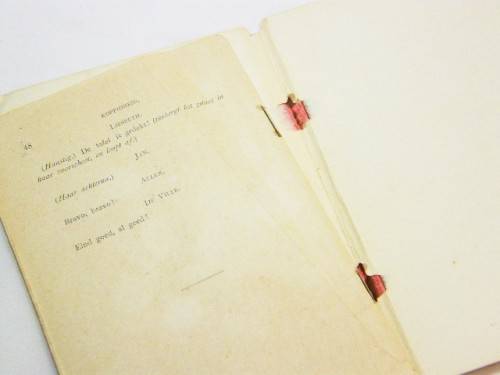 48
KOPPIGHEID.
LISBETH.
(Haastig.) De tafel is gedekt! (ontbergt het zwaar in
haar voorschoot, en loopt af.)
JAN.
(Haar achterna.)
ALLEN.
Bravo, bravo!
DE VILLE.
Eind goed, al goed!